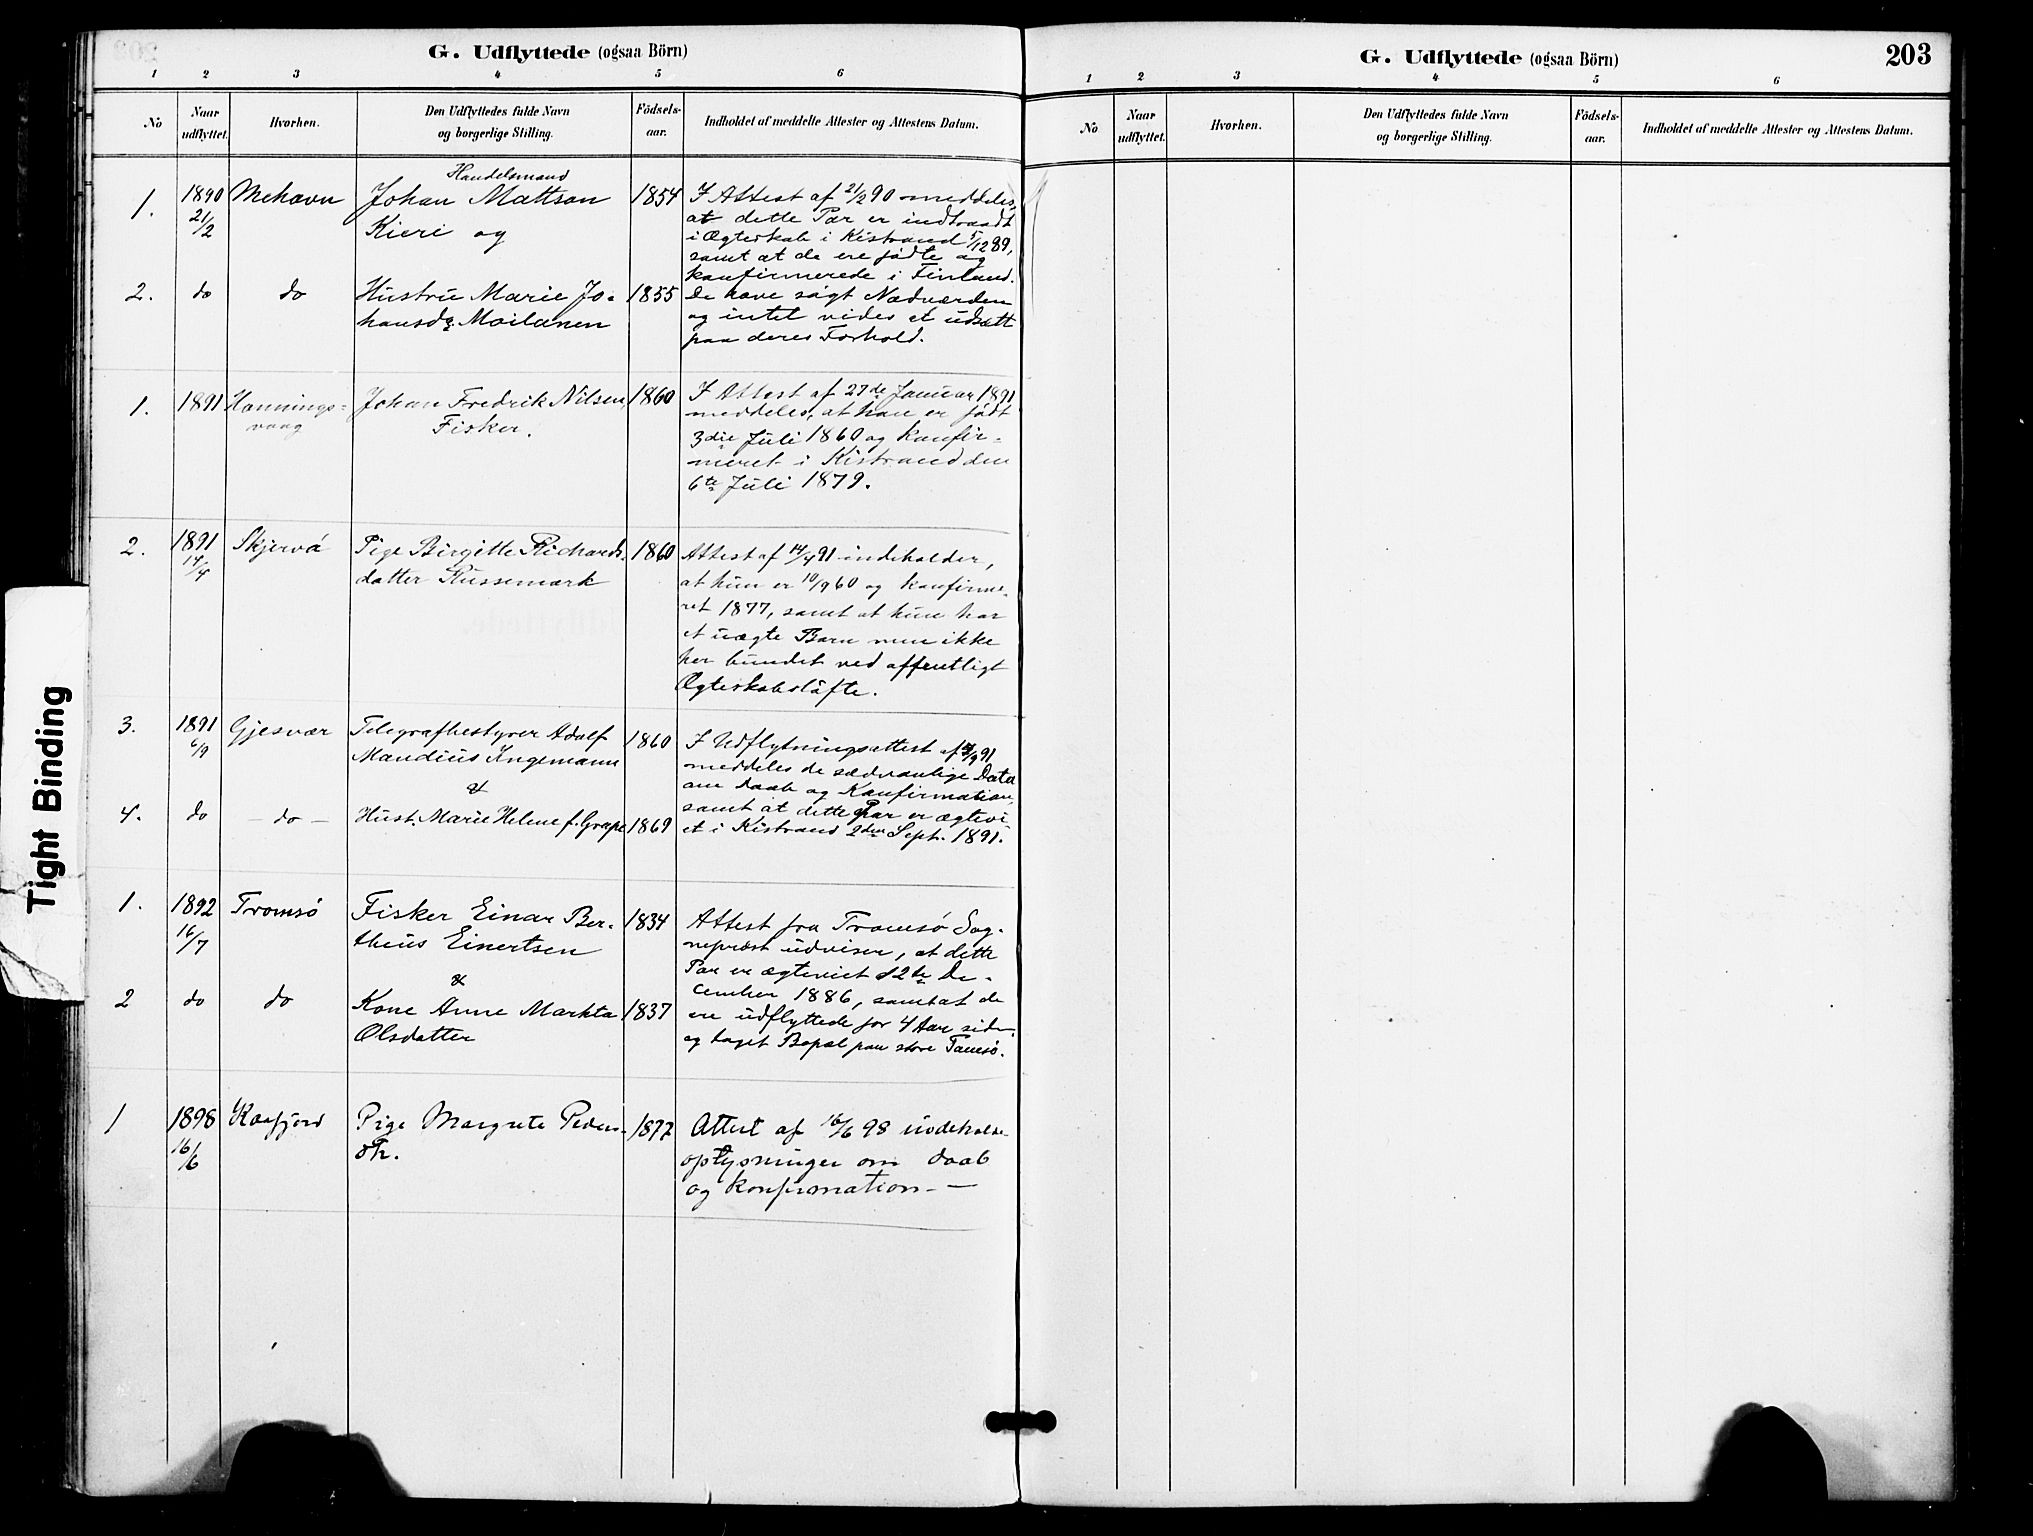 G. Udflyttede (ogsaa Börn)
1 2 3 4 5 6
No
Naar udflyttet.
Hvorhen.
Den Udflyttedes fulde Navn og borgerlige Stilling.
Födsels-aar.
Indholdet af meddelte Attester og Attestens Datum.
1.
1890
21/2
Mehavn
Handelsmand
Johan Mattson
Kieri og
1854
I Attest af 21/2 90 meddeles,
at dette Par er indtraadt
i Ægteskab i Kistrand 5/12 89,
samt at de ere fødte og
konfirmerede i Finland.
2.
do
do
Hustru Marie Jo-
hansdr. Moilanen
1855
De have søgt Nadverden
og intet vides et udsatt
paa deres Forhold.
1.
1891
Honnings-
vaag
Johan Fredrik Nilsen,
Fisker.
1860
I Attest af 27de Januar 1891
meddeles, at han er født
3die Juli 1860 og Konfir-
meret i Kistrand den
6te Juli 1879.
2.
1891
14/4
Skjervö
Pige Birgitte Richards-
datter Russemark
1860
Attest af 14/4 91 indeholder,
at hun er 10/9 60 og konfirme-
ret 1877, samt at hun har
et uægte Barn men ikke
her bundet ved offentligt
Ægteskabsløfte.
3.
1891
6/9
Gjesvær
Telegrafbestyrer Adolf
Mandius Ingemann
&
1860
I Udflytningsattest af /9 91
meddeles de sædvanlige Data
om Daab og Konfirmation,
samt at dette Par er ægtevi
et i Kistrand 2den Sept. 1891.
4.
do
- do -
Hust. Marie Helene f. Grape
1869
1.
1892
16/7
Tromsö
Fisker Einar Ber-
theus Einertsen
&
1834
Attest fra Tromsö Sog-
neprest udviser, at dette
Par er ægteviet d 2de De-
cember 1886, samt at de
ere udflyttede for 4 Aar siden,
og taget Bopæl paa store Tamsø.
2
do
do
Kone Anne Markta
Olsdatter
1837
1
1898
16/6
Kaafjord
Pige Margrete Peders-
dtr.
1877
Attest af 16/6 98 indeholde
oplysninger om daab
og konfirmation - —
G. Udflyttede (ogsaa Börn)
203
1 2 3 4 5 6
No
Naar udflyttet.
Hvorhen.
Den Udflyttedes fulde Navn og borgerlige Stilling.
Födsels-aar.
Indholdet af meddelte Attester og Attestens Datum.
Tight Binding